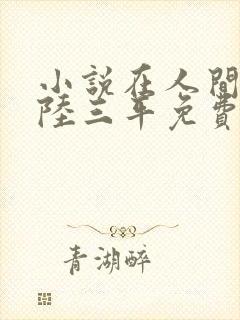 小說在人間
陸三年免費
青湖醉